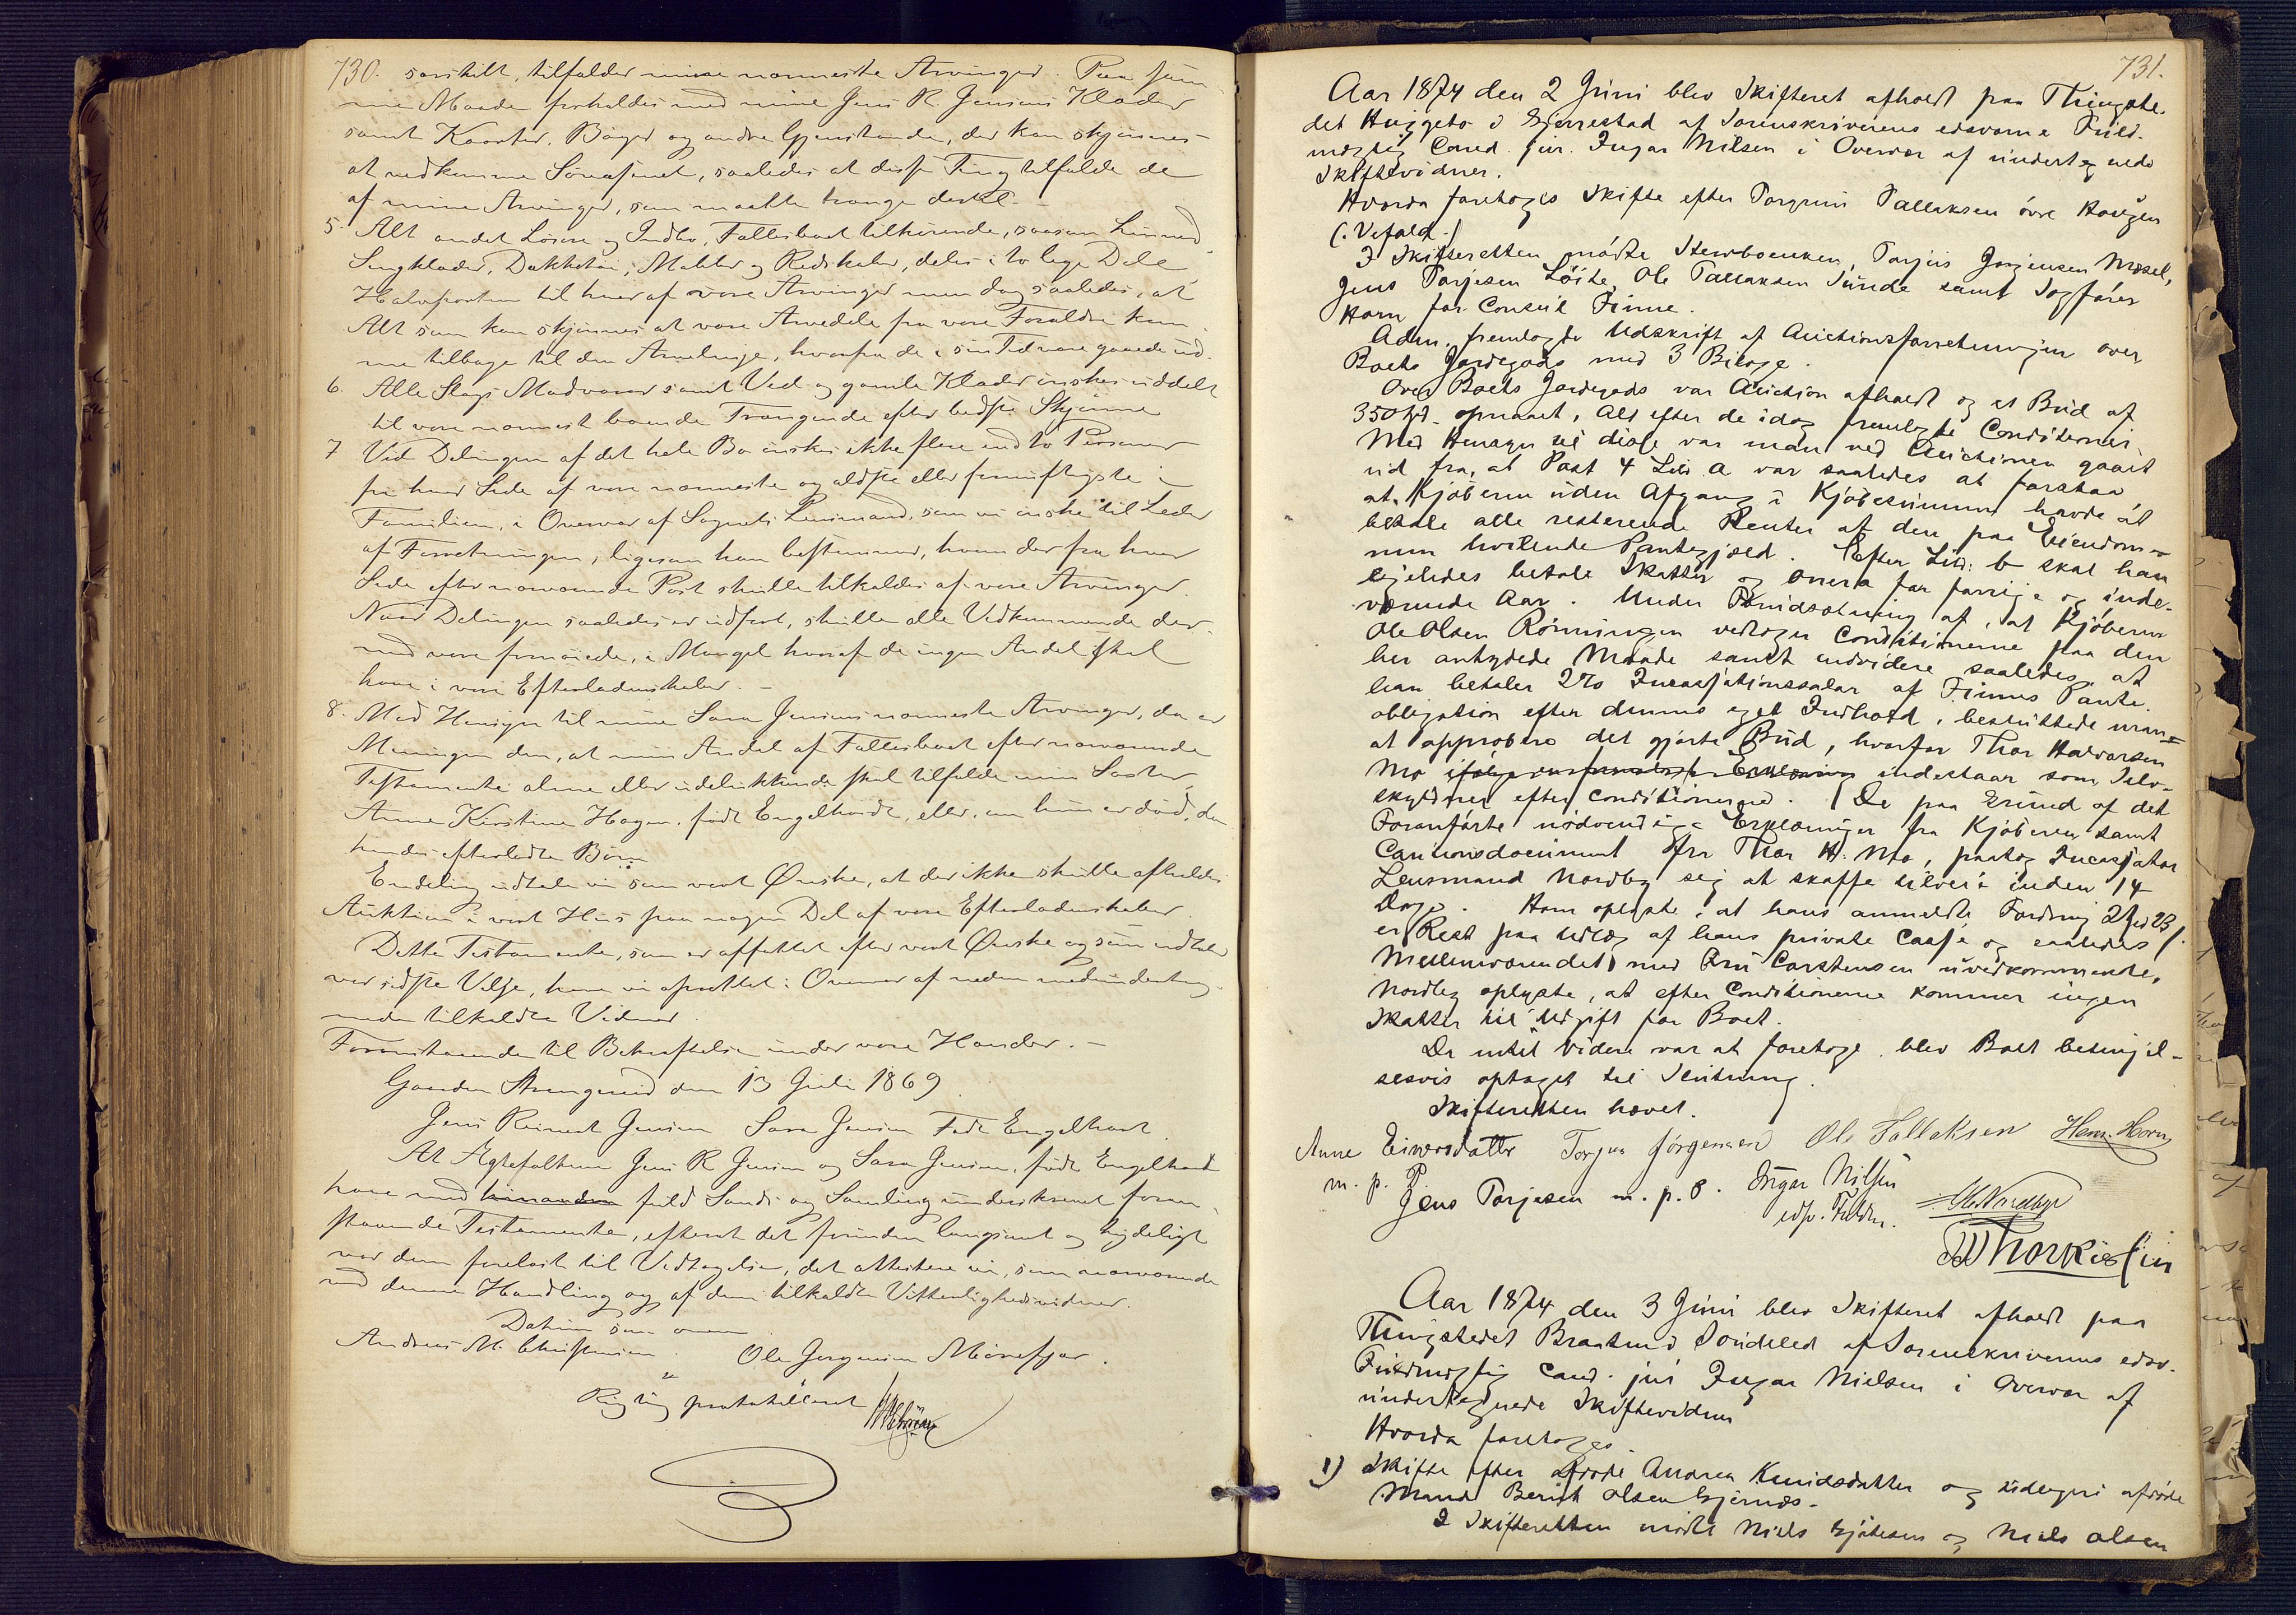 730. særskilt, tilfalder mine nærmeste Arvinger. Paa sam-
me Maade forholdes med mine Jens R. Jensens Klæder
samt Kaarter, Bøger og andre Gjenstande, der kan skjønnes
at vedkomme Søvæsenet, saaledes at disse Ting tilfalde de
af mine Arvinger, som maatte trænge dertil. –
5. Alt andet Løsøre og Indbo, Fællesboet tilhørende, saasom Linned
Sengklæder, Dækketøi, Møbler og Redskaber, deles i to lige Dele
Halvparten til hver af vore Arvinger men dog saaledes, at
Alt som kan skjønnes at være Arvedele fra vore Forældre kom-
me tilbage til den Arvelinje, hvorfra de i sin Tid vare gaaede ud.
6. Alle Slags Madvarer samt Ved og gamle Klæder ønskes uddelt
til vore nærmest boende Trængende efter bedste Skjønne
7 Ved Delingen af det hele Bo ønskes ikke flere end to Personer
fra hver Side af vore nærmeste og ældste eller fornuftigste i
Familien, i Overvær af Sognets Lensmand, som vi ønske til Leder
af Forretningen, ligesom han bestemmer, hvem der fra hver
Side efter nærværende Post skulle tilkaldes af vore Arvinger.
Naar Delingen saaledes er udført, skulle alle Vedkommende der-
med være fornøiede, i Mangel hvoraf de ingen Andel skal
have i vore Efterladenskaber. –
8. Med Hensyn til mine Sara Jensens nærmeste Arvinger, da er
Meningen den, at min Andel af Fællesboet efter nærværende
Testamente alene eller udelukkende skal tilfalde min Søster
Anne Kirstine Hagen, født Engelhardt, eller, om hun er død, da
hendes efterladte Børn
Endelig udtale vi som vort Ønske, at der ikke skulle afholdes
Auktion i vort Hus paa nogen Del af vore Efterladenskaber.
Dette Testamente, som er affattet efter vort Ønske og som indeholder
vor sidste Villje, have vi oprettet i Overvær af neden medunderteg-
nede tilkaldte Vidner.
Foranstaaende til Bekræftelse under vore Hænder. –
Gaarden den 13 Juli 1869
Jens Reinert Jensen Sara Jensen Født Engelhart.
At Ægtefolkene Jens R Jensen og Sara Jensen, født Engelhardt
have med hinanden fuld Sands og Samling underskrevet foran-
staaende Testamente, efterat det forinden langsomt og tydeligt
var dem forelæst til Vedtagelse, det attestere vi, som nærværende
ved denne Handling og af dem tilkaldte Vitterlighedsvidner.
Datum som oven
Andreas M. Christensen. Ole Jørgensen Mørefjær.
Rigtig protokolleret
731.
Aar 1874 den 2 Juni blev Skifteret afholdt paa Thingste-
det Huggeto i Gjerrestad af Sorenskriverens edsvorne Fuld-
mægtig Cand. jur. Ingar Nilsen i Overvær af undertegnede
Skiftevidner.
Hvorda foretoges Skifte efter Torgrim Tallaksen øvre Haugen
(: Vefald :)
I Skifteretten mødte Stervboenken, Torjus Jørgensen Mosel,
Jens Torjesen Löite, Ole Tallaksen Sunde samt Sagfører
Horn for Consul Finne.
Adm. fremlagde Udskrift af Auctionsforretningen over
Boets Jordegods med 3 Bilage.
Over Boets Jordegods var Auction afholdt og et Bud af
350 Spd. opnaaet, alt efter de idag fremlagte Conditioner.
Med Hensyn til disse var man ved Auctionen gaaet
ud fra, at Post 4 Litr a var saaledes at forstaa,
at Kjøberen uden Afgang i Kjøbesummen havde at
betale alle resterende Renter af den paa Eiendom-
men hvilende Pantegjæld. Efter Litr: b skal han
ligeledes betale Skatter og Onera for forrige og inde-
værende Aar. Under Forudsætning af, at Kjøberen
Ole Olsen Rønningen vedtager Conditionerne paa den
her antydede Maade samt endvidere saaledes, at
han betaler 2% Incassationssalær af Finnes Pante-
obligation efter dennes eget Indhold, besluttede man
at approbere det gjorte Bud, hvorfor Thor Halvorsen
Mo ifølge Erklæring indestaar som Selv-
skyldner efter Conditionerne. De paa Grund af det
Foranførte nødvendige Erklæringer fra Kjøberen samt
Cautionsdocument fra Thor H. Mo, paatog Incassator
Lensmand Nordby seg at skaffe tilveie inden 14
Dage. Horn oplyste, at hans anmeldte Fordring 2 Spd 23 s.
er Rest paa Udlæg af hans private Casse og saaledes
Mellemværendet med Fru Carstensen uvedkommende.
Nordby oplyste, at efter Conditionerne kommer ingen
Skatter til Udgift for Boet.
Da intet videre var at foretage, blev Boet betingel-
sesvis optaget til Slutning.
Skifteretten hævet.
Anne Eivorsdatter Torjus Jørgensen Ole Tallaksen Hans Horn
m. p. P.
Jens Torjesen m. p. P. Ingar Nilsen
edsv. Fuldm.
Nordby
Thorkis
Aar 1874 den 3 Juni blev Skifteret afholdt paa
Thingstedet Brasteid i Søndeled af Sorenskriverens edsv.
Fuldmægtig Cand. jur Ingar Nielsen i Overvær af
undertegnede Skiftevidner
Hvorda foretoges.
1) Skifte efter afdøde Andrea Knudsdatter og tidligere afdøde
Mand Berent Olsen Gjernæs.
I Skifteretten mødte Niels og Niels Olsen